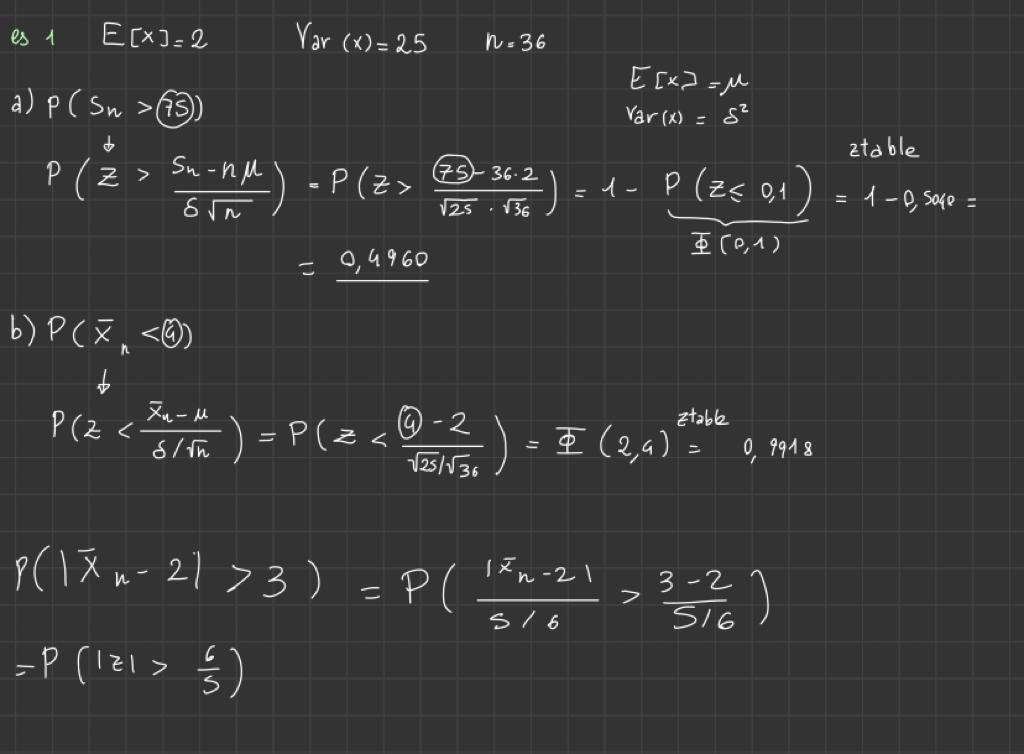 es 1 E[x]=2 Var (x)=25 n=36
E[x]=μ
a) P(Sn >75)
Var(x) = δ²
ztable
P(z > (Sn-nμ)/(δ√n)) = P(z > (75-36·2)/(√25 · √36)) = 1- P(z≤ 0,1) = 1-0,5040 =
Φ(0,1)
= 0,4960
b) P(x̄n <4)
P(z < (x̄n-μ)/(δ/√n)) = P(z < (4-2)/(√25/√36)) = Φ(2,4) ztable = 0,9918
P(|x̄n-2| >3) = P(|x̄n-2|/(5/6) > (3-2)/(5/6))
=P(|z| > 6/5)